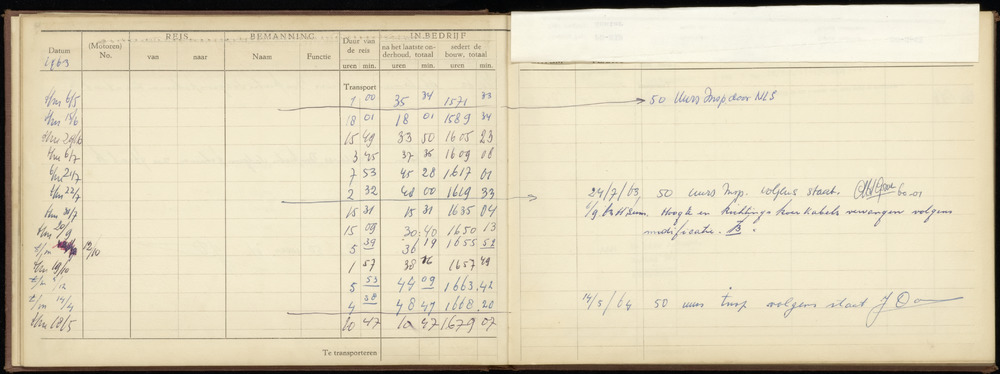 REIS BEMANNING Duur van de reis IN BEDRIJF
Datum (Motoren) No. van naar Naam Functie na het laatste onderhoud, totaal sedert de bouw, totaal
1963 uren min. uren min. uren min.
Transport
t/m 6/5 1 00 35 34 1571 33 50 Uurs Insp door NLS
18 01 18 01 1589 34
15 49 33 50 1605 23
t/m 6/7 3 45 37 35 1609 08
t/m 21/7 7 53 45 28 1617 01
t/m 22/7 2 32 48 00 1619 33 24/7/63, 50 uurs Insp. volgens staat.
t/m 31/7 15 31 15 31 1635 04 Hoogte en Richtings kabels vervangen volgens
t/m 20/9 15 09 30:40 1650 13 modificatie. B.
t/m 12/10 5 39 36 19 1655 52
t/m 19/10 1 57 38 16 1657 49
5 53 44 09 1663.42
t/m 14/4 4 38 48 47 1668.20 14/5/64 50 uurs insp volgens staat
t/m 18/5 10 47 10 47 1679 07
Te transporteren